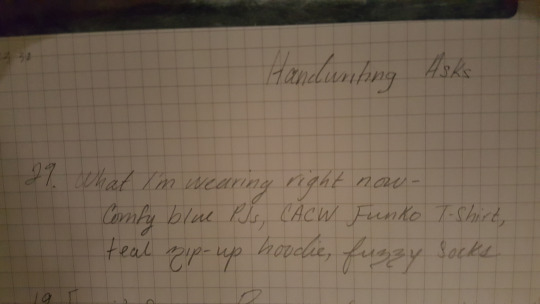 Handwriting Asks
29. What I'm wearing right now-
Comfy blue PJs, CACW Funko T-Shirt,
teal zip-up hoodie, fuzzy socks
19.